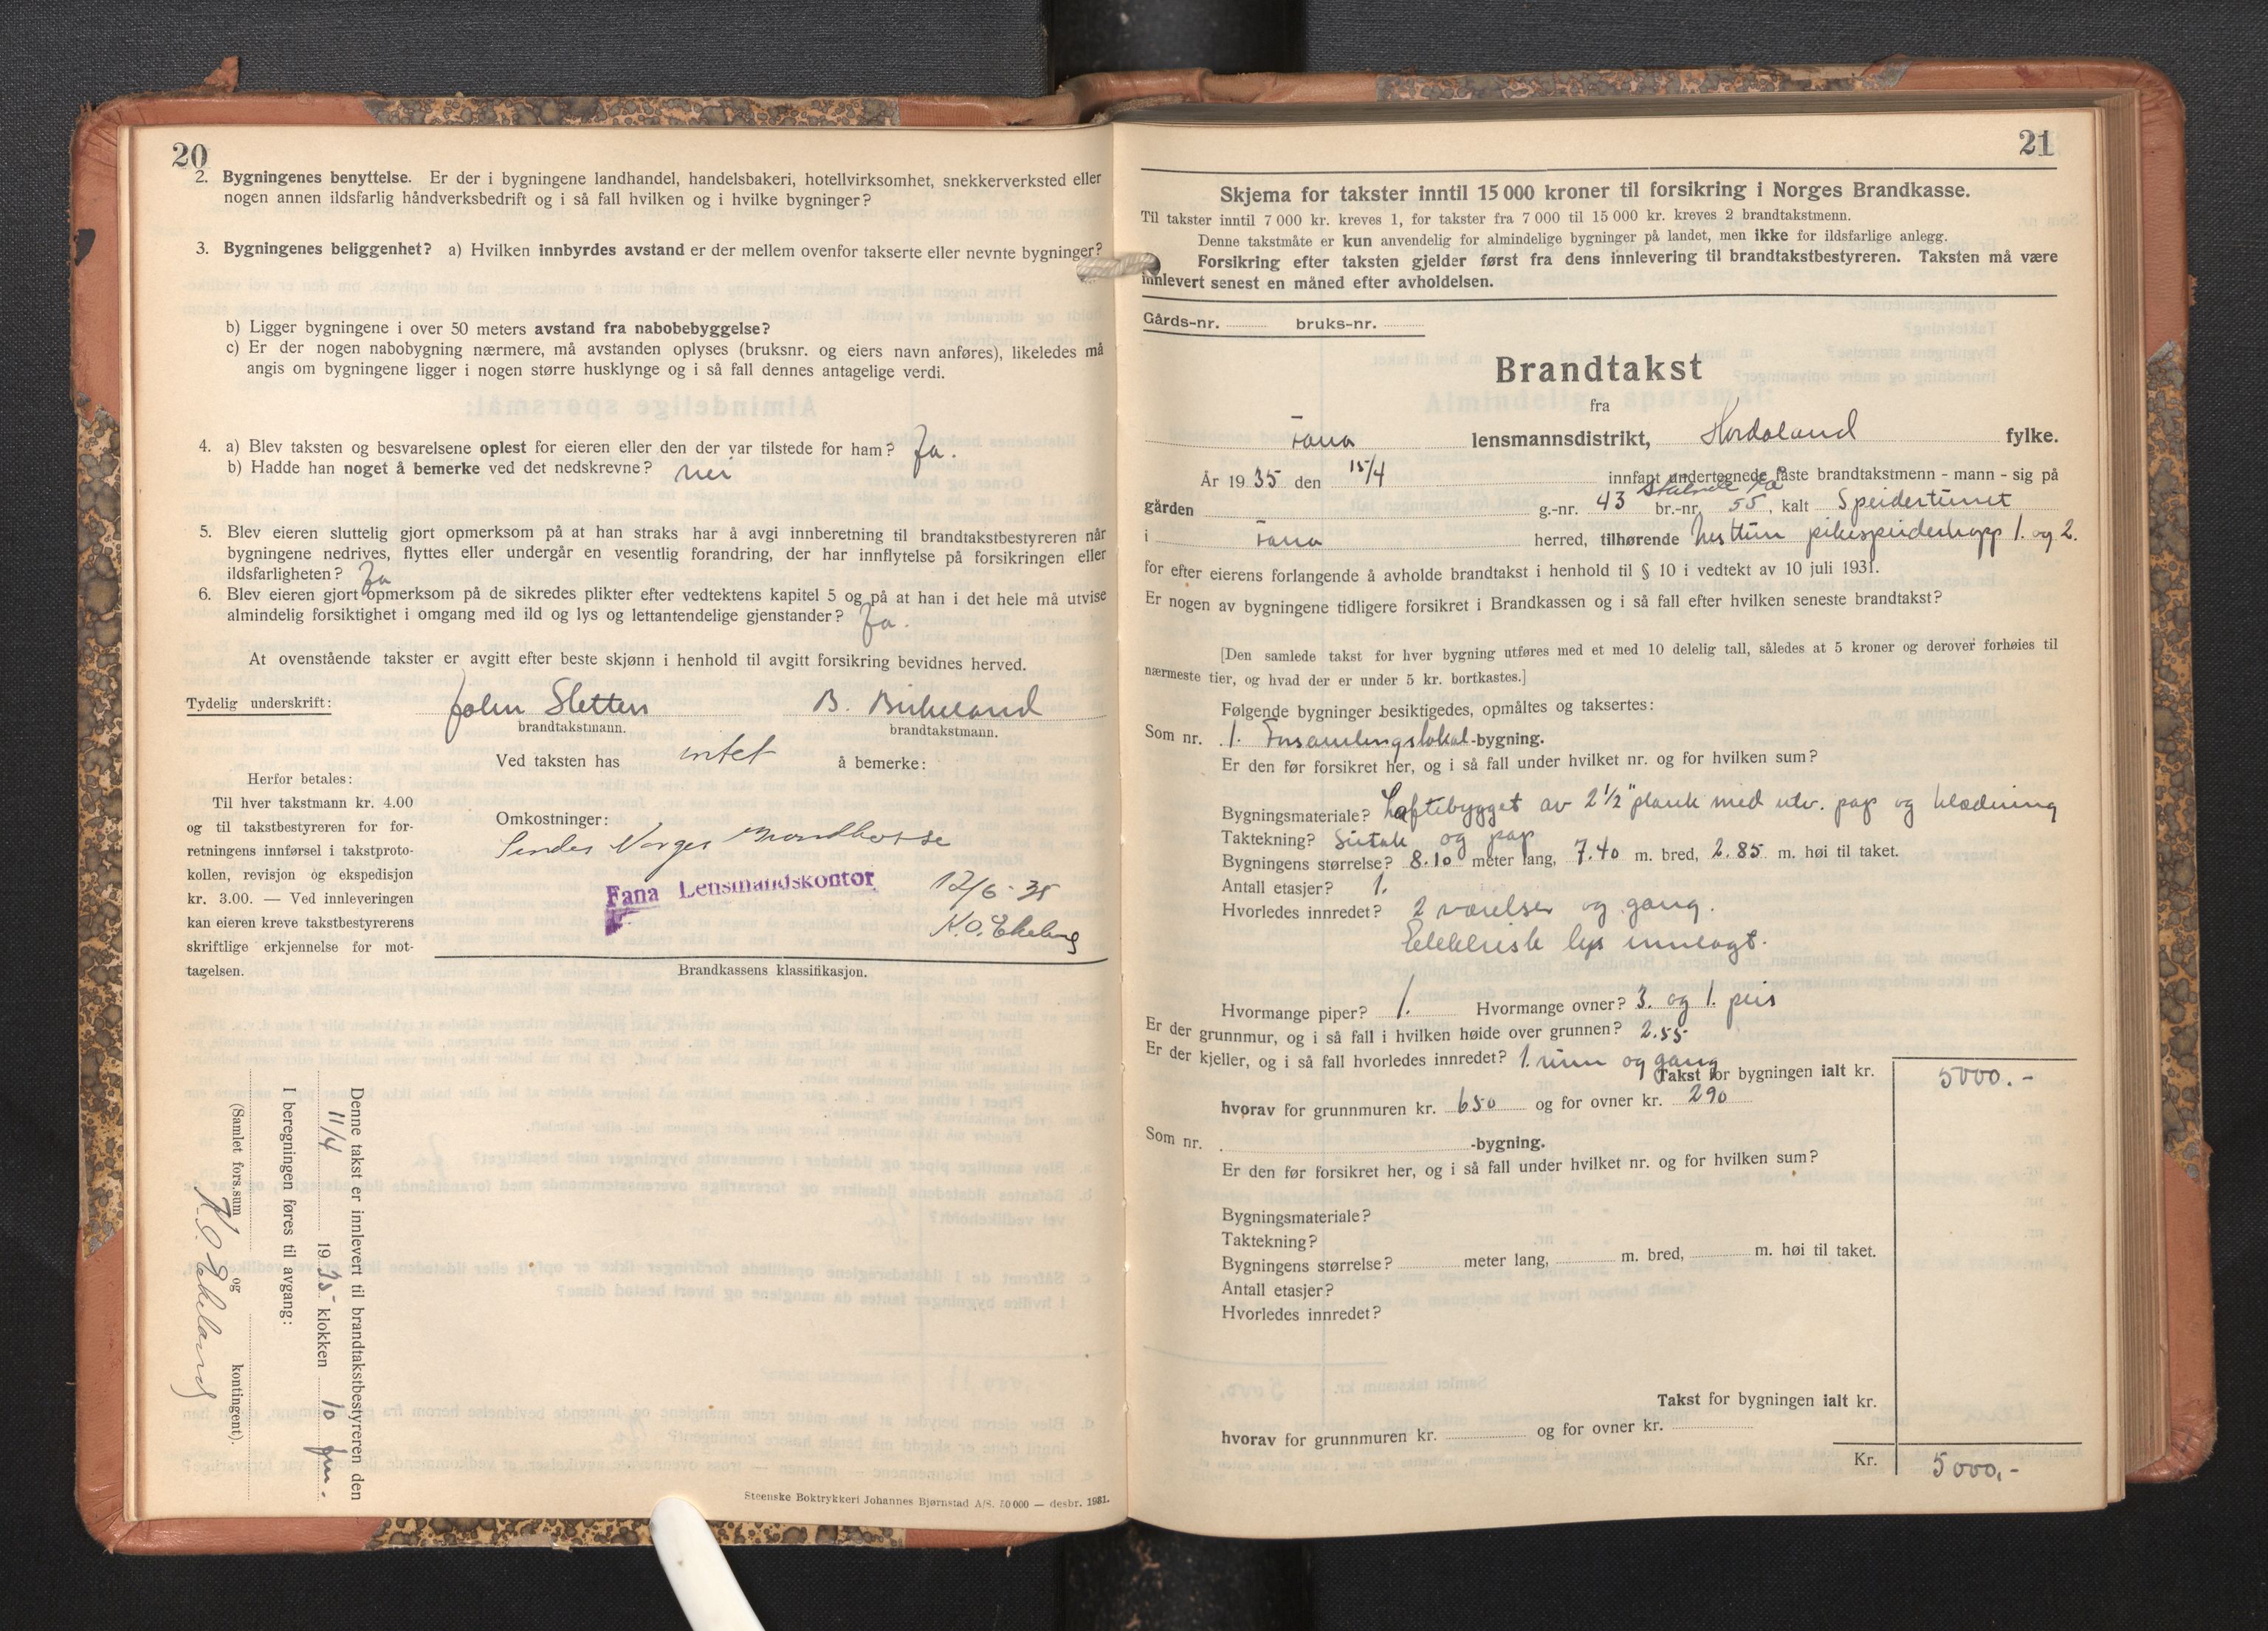 20
2. Bygningenes benyttelse. Er der i bygningene landhandel, handelsbakeri, hotellvirksomhet, snekkerverksted eller
nogen annen ildsfarlig håndverksbedrift og i så fall hvilken og i hvilke bygninger?
3. Bygningenes beliggenhet? a) Hvilken innbyrdes avstand er der mellem ovenfor takserte eller nevnte bygninger?
b) Ligger bygningene i over 50 meters avstand fra nabobebyggelse?
c) Er der nogen nabobygning nærmere, må avstanden oplyses (bruksnr. og eiers navn anføres), likeledes må
angis om bygningene ligger i nogen større husklynge og i så fall dennes antagelige verdi.
4. a) Blev taksten og besvarelsene oplest for eieren eller den der var tilstede for ham? Ja.
b) Hadde han noget å bemerke ved det nedskrevne? nei
5. Blev eieren sluttelig gjort opmerksom på at han straks har å avgi innberetning til brandtakstbestyreren når
bygningene nedrives, flyttes eller undergår en vesentlig forandring, der har innflytelse på forsikringen eller
ildsfarligheten? Ja
6. Blev eieren gjort opmerksom på de sikredes plikter efter vedtektens kapitel 5 og på at han i det hele må utvise
almindelig forsiktighet i omgang med ild og lys og lettantendelige gjenstander? Ja.
At ovenstående takster er avgitt efter beste skjønn i henhold til avgitt forsikring bevidnes herved.
Tydelig underskrift: John Sletten B. Birkeland
brandtakstmann. brandtakstmann.
Ved taksten has intet å bemerke:
Herfor betales:
Til hver takstmann kr. 4.00
og til takstbestyreren for for-
retningens innførsel i takstproto-
kollen, revisjon og ekspedisjon
kr. 3.00. — Ved innleveringen
kan eieren kreve takstbestyrerens
skriftlige erkjennelse for mot-
tagelsen.
Omkostninger:
Sendes Norges Brandkasse
Fana Lensmandskontor 12/6-35
K.O. Ekeland
Brandkassens klassifikasjon.
Denne takst er innlevert til brandtakstbestyreren den
11/4 1935 klokken 10 fm.
I beregningen føres til avgang:
(Samlet fors.sum og kontingent).
K O Ekeland
Steenske Boktrykkeri Johannes Bjørnstad A/S. 50 000 — desbr. 1931.
21
Skjema for takster inntil 15 000 kroner til forsikring i Norges Brandkasse.
Til takster inntil 7 000 kr. kreves 1, for takster fra 7 000 til 15 000 kr. kreves 2 brandtakstmenn.
Denne takstmåte er kun anvendelig for almindelige bygninger på landet, men ikke for ildsfarlige anlegg.
Forsikring efter taksten gjelder først fra dens innlevering til brandtakstbestyreren. Taksten må være
innlevert senest en måned efter avholdelsen.
Gårds-nr. bruks-nr.
Brandtakst
fra
Fana lensmannsdistrikt, Hordaland fylke.
År 1935 den 15/4 innfant undertegnede faste brandtakstmenn - mann - sig på
gården g.-nr. 43 br.-nr. 55, kalt Speidertunet
i Fana herred, tilhørende Nesttun pikespeidertropp 1. og 2.
for efter eierens forlangende å avholde brandtakst i henhold til § 10 i vedtekt av 10 juli 1931.
Er nogen av bygningene tidligere forsikret i Brandkassen og i så fall efter hvilken seneste brandtakst?
[Den samlede takst for hver bygning utføres med et med 10 delelig tall, således at 5 kroner og derover forhøies til
nærmeste tier, og hvad der er under 5 kr. bortkastes.]
Følgende bygninger besiktigedes, opmåltes og taksertes:
Som nr. 1. Forsamlingslokal-bygning.
Er den før forsikret her, og i så fall under hvilket nr. og for hvilken sum?
Bygningsmateriale? Laftebygget av 2 1/2" plank med utv. pap og klædning
Taktekning? Sutak og pap
Bygningens størrelse? 8.10 meter lang, 7.40 m. bred, 2.85 m. høi til taket.
Antall etasjer? 1.
Hvorledes innredet? 2 værelser og gang.
Elektrisk lys innlagt.
Hvormange piper? 1. Hvormange ovner? 3. og 1. peis
Er der grunnmur, og i så fall i hvilken høide over grunnen? 2.55
Er der kjeller, og i så fall hvorledes innredet? 1. rum og gang
Takst for bygningen ialt kr. 5000.-
hvorav for grunnmuren kr. 650 og for ovner kr. 290
Som nr. -bygning.
Er den før forsikret her, og i så fall under hvilket nr. og for hvilken sum?
Bygningsmateriale?
Taktekning?
Bygningens størrelse? meter lang, m. bred, m. høi til taket.
Antall etasjer?
Hvorledes innredet?
Takst for bygningen ialt kr.
hvorav for grunnmuren kr. og for ovner kr.
Kr. 5000,-